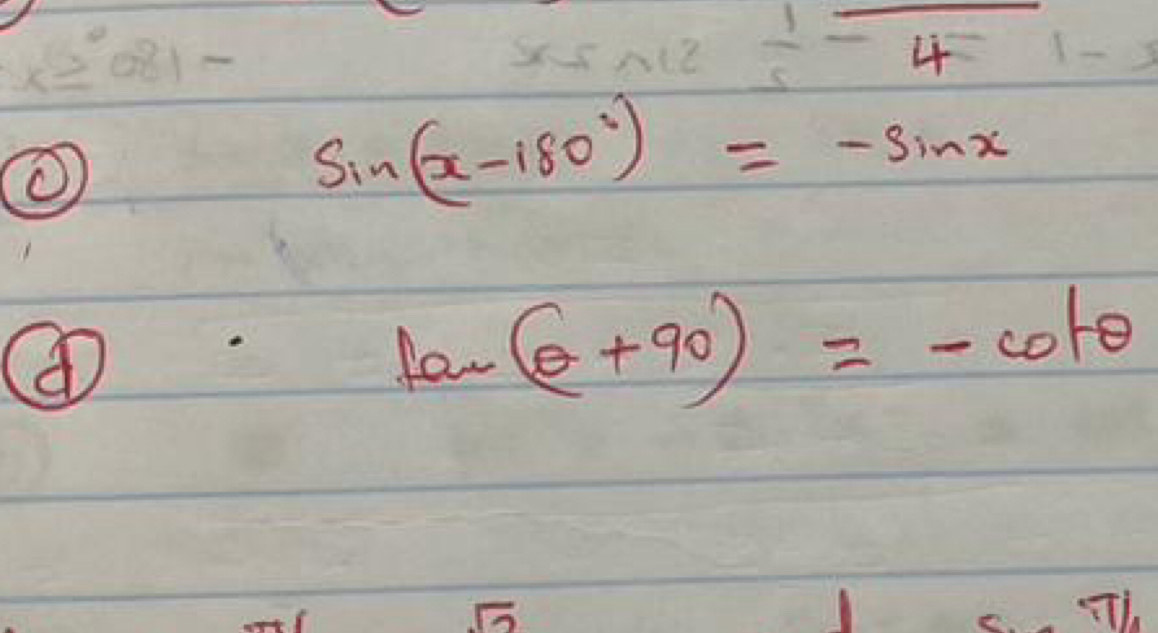 4
(c) sin(x-180°) = -sinx
(d) tan(θ+90) = -cotθ